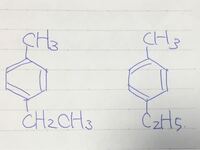 CH3 CH3
CH2CH3 C2H5